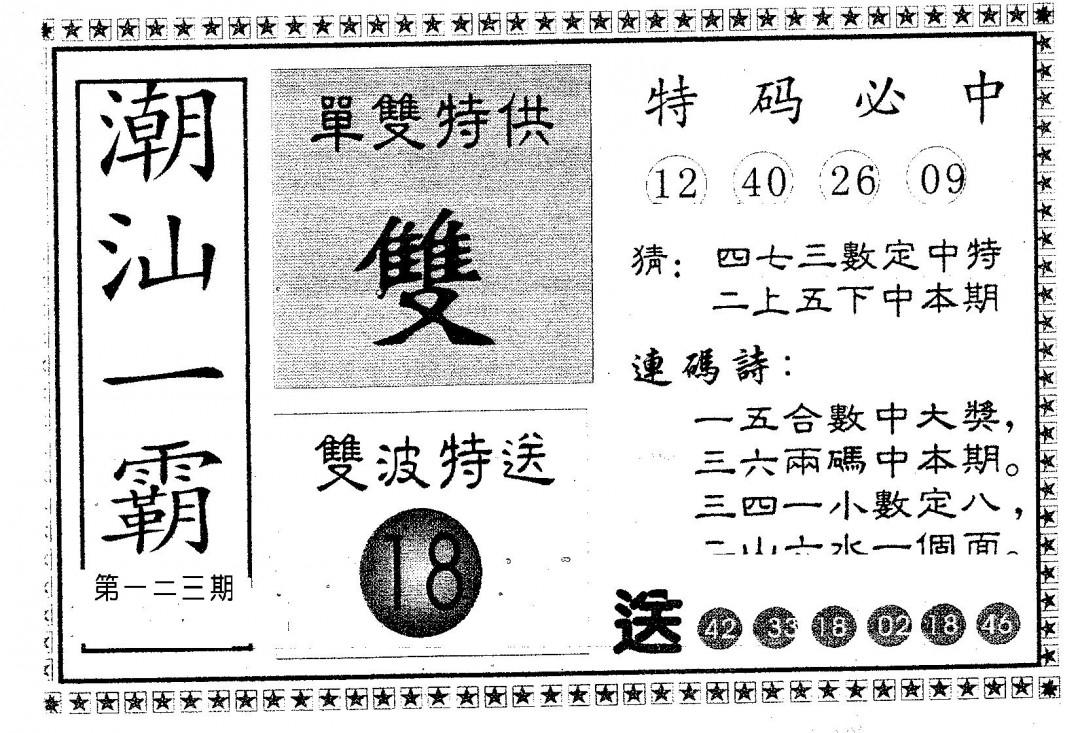 潮汕一霸
第一二三期
單雙特供
雙
雙波特送
18
特码必中
12 40 26 09
猜：四七三數定中特
二上五下中本期
連碼詩：
一五合數中大獎，
三六兩碼中本期。
三四一小數定八，
一個面。
送 42 33 18 02 18 46